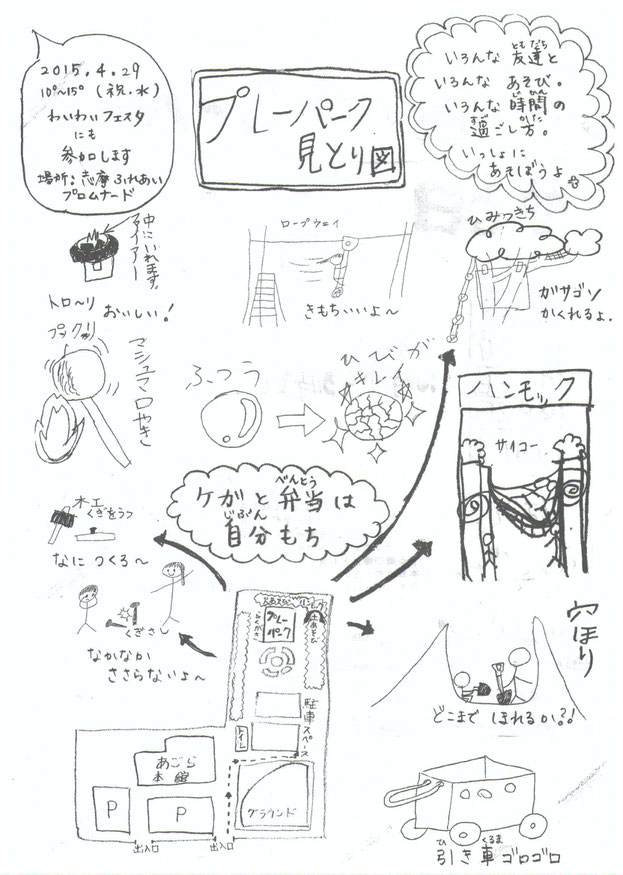 2015.4.29
10°~15° (祝.水)
わいわいフェスタ
にも
参加します
場所:志摩ふれあい
プロムナード
プレーパーク
見とり図
いろんな友達と
ともだち
いろんな あそび。
いろんな時間の
じかん
過ごし方。
すご かた
いっしょに
あそぼうよ
中にいれます。
ファイアー
トロ~リ
おいしい!
プックリ
マシュマロやき
ロープウェイ
きもちいいよ~
ひみつきち
ガサゴソ
かくれるよ。
ふつう
ひびが
キレイ
ハンモック
サイコー
ケガと弁当は
べんとう
自分もち
じぶん
木工
くぎをうつ
なにつくる~
くぎさし
なかなか
ささらないよ~
プレー
パーク
土あそび
駐車スペース
トイレ
あごら
本館
P
P
グラウンド
出入口
出入口
穴ほり
どこまで ほれるか?!
引き車ゴロゴロ
ひ くるま